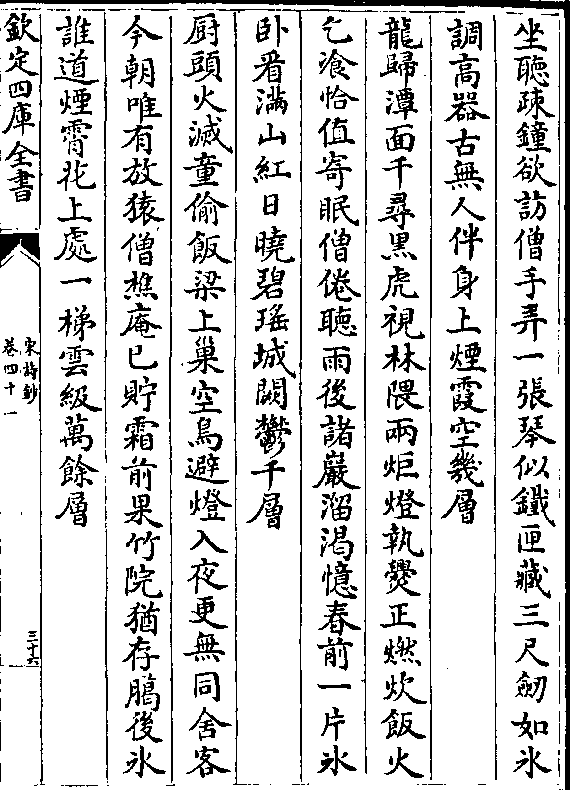 坐聽疎鐘欲訪僧手弄一張琴似鐵匣藏三尺劒如氷
調高器古無人伴身上煙霞空幾層
龍歸潭面千尋黑虎視林隈兩炬燈執㸑正燃炊飯火
乞飡恰值寄眠僧倦聽雨後諸巖溜渴憶春前一片氷
卧看滿山紅日曉碧瑤城闕鬱千層
厨頭火滅童偷飯梁上巢空鳥避燈入夜更無同舍客
今朝唯有放猿僧樵庵已貯霜前果竹院猶存臈後氷
誰道煙霄花上處一梯雲級萬餘層
欽定四庫全書
宋詩鈔
卷四十一
三十六